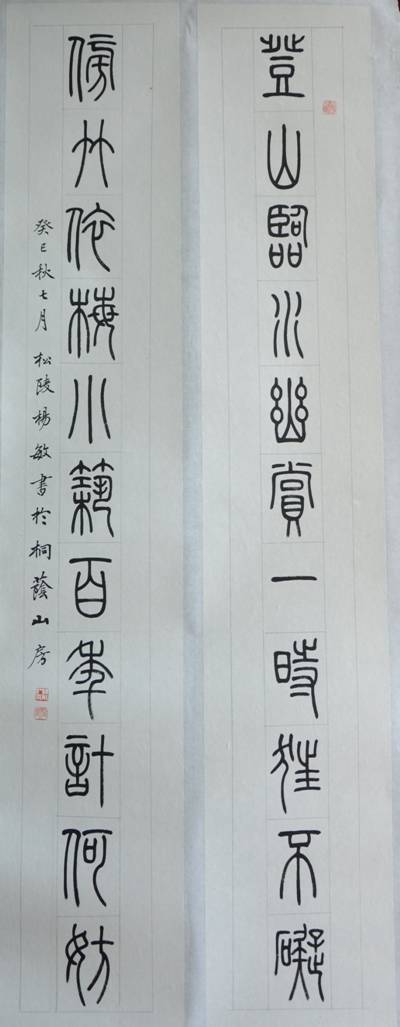 登山臨水幽賞一時狂不礙
傍竹依梅小築百年計何妨
癸巳秋七月松陵楊敏書於桐蔭山房